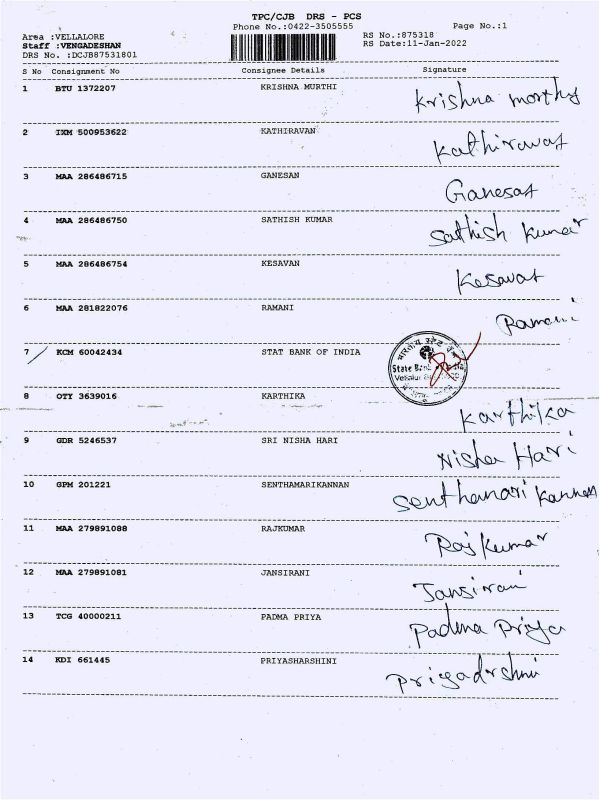 TPC/CJB DRS - PCS
Phone No.:0422-3505555 Page No.:1
Area :VELLALORE RS No.:875318
Staff :VENGADESHAN RS Date:11-Jan-2022
DRS No. :DCJB87531801
S No Consignment No Consignee Details Signature
1 BTU 1372207 KRISHNA MURTHI Krishna morthy
2 IXM 500953622 KATHIRAVAN Kathiravan
3 MAA 286486715 GANESAN Ganesan
4 MAA 286486750 SATHISH KUMAR Sathish Kumar
5 MAA 286486754 KESAVAN Kesavan
6 MAA 281822076 RAMANI Ramani
7 KCM 60042434 STAT BANK OF INDIA
State Bank
8 OTY 3639016 KARTHIKA Karthika
9 GDR 5246537 SRI NISHA HARI Nisha Hari
10 GPM 201221 SENTHAMARIKANNAN Senthamari Kannan
11 MAA 279891088 RAJKUMAR Raj Kumar
12 MAA 279891081 JANSIRANI Jansirani
13 TCG 40000211 PADMA PRIYA Padma Priya
14 KDI 661445 PRIYASHARSHINI Priyadrshni